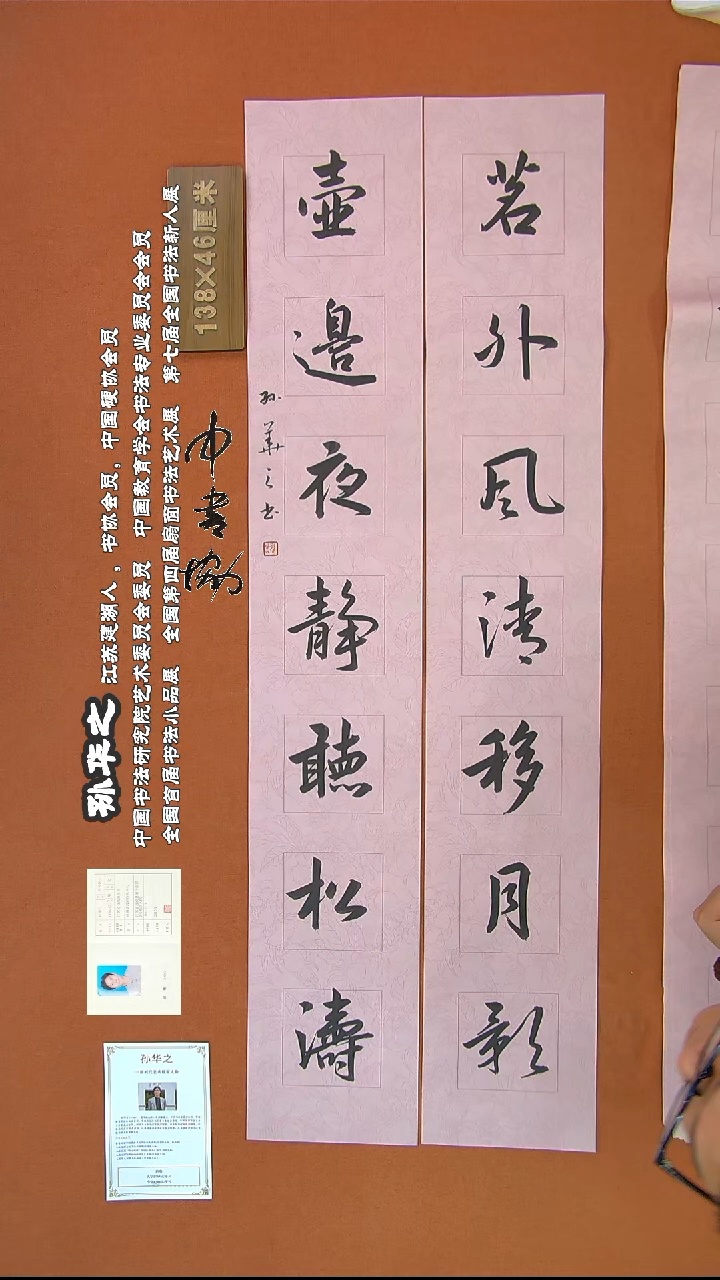 茗外風清移月影
壺邊夜靜聽松濤
孙華之书
138×46厘米
中书协
孙华之
江苏建湖人，书协会员，中国硬协会员
中国书法研究院艺术委员会委员 中国教育学会书法专业委员会会员
全国首届书法小品展 全国第四届扇面书法艺术展 第七届全国书法新人展
孙华之